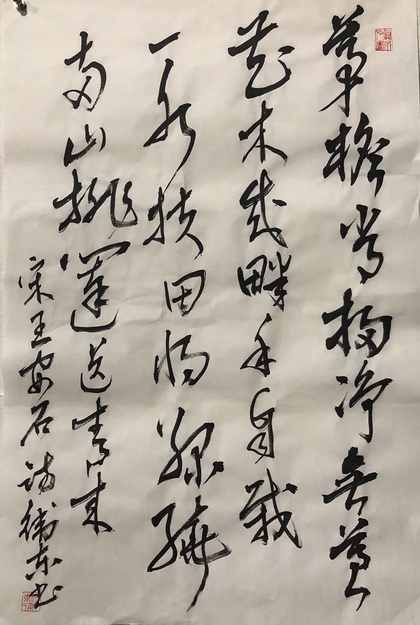 茅檐常扫净無苔
花木成畦手自栽
一水护田将绿绕
两山排闼送青来
宋王安石诗衛东书